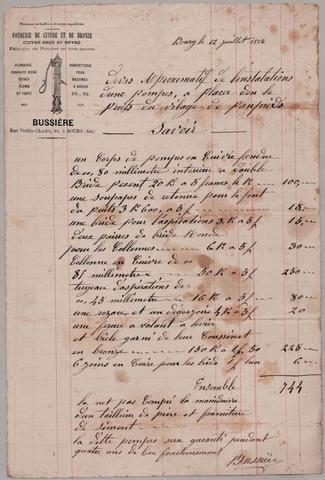 FONDERIE DE CUIVRE ET DE BRONZE
CUIVRE BRUT ET OUVRÉ
Fabrique de Pompes en tous genres
PLOMBERIE
CONDUITE D'EAU
TUYAUX
PLOMB
ET FONTE
ROBINETTERIE
POUR
MACHINES
A VAPEUR
ETC., ETC.
BUSSIÈRE
Rue Vieille-Charité, 64, à BOURG (Ain)
Bourg le 12 juillet
Devis Aproximatif de linstalations
dune pompes, a placer don le
puits du vilage de
Savoir
un Corps de pompes en Cuivre fondue
de 00,80 millimètre interieur a double
Bride pesent 20 K a 5 frames le K 100,
une soupapes de retenue pour le font
du puits 3 K 600, a 5 f 18
une bride pour l'aspirations 3 K a 5 f 15
deux paires de bride Ronde
pour les Collonnes 6 K a 5 f 30
Collonne en Cuivre de 00
85 millimètre 50 K a 5 f 250
tuyeau d'aspirations de
00,45 millimètre 16 K a 5 f 80
une rozace et un degorgoire 4 K a 5 f 20
une ferrure a volant a levier
et biele garni de leur Coussinet
en bronze 150 K a 1 f 50 225
6 joins en Cuire pour les bride 1 f l'un 6
Ensemble 744
la nut pas Compri la maindoeuvre
d'un tailleur de piere et fournitures
de siment
la ditte pompes sera garanti pendant
quatre ans de bon fonctionement
Bussière